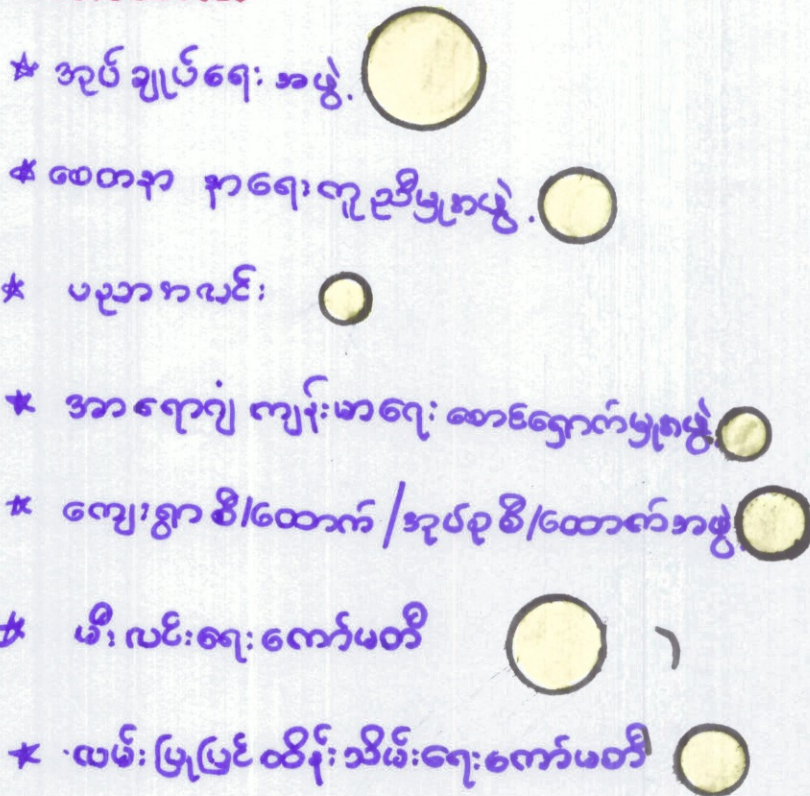 ★ အုပ်ချုပ်ရေး အဖွဲ့
★ စေတနာ နာရေးကူညီမှုအဖွဲ့
★ ပညာအလင်း
★ အာရောဂျံ ကျန်းမာရေး စောင့်ရှောက်မှုအဖွဲ့
★ ကျေးရွာ စီ/ထောက် / အုပ်စု စီ/ထောက်အဖွဲ့
★ မီးလင်းရေး ကော်မတီ
★ လမ်း ပြုပြင် ထိန်းသိမ်းရေး ကော်မတီ